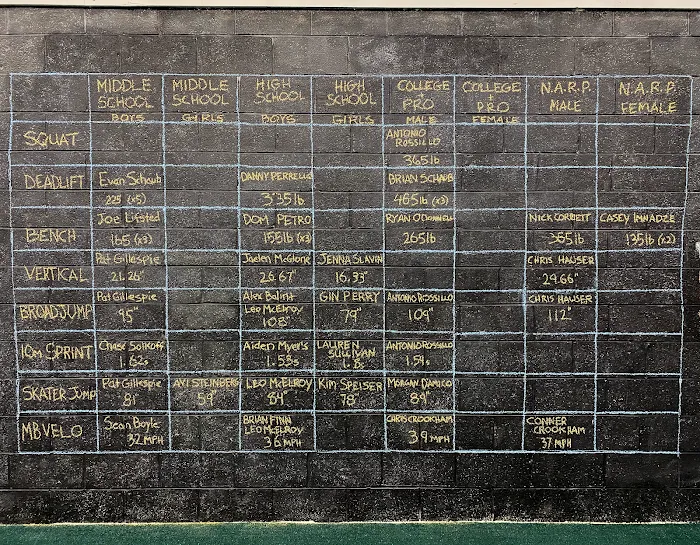 MIDDLE SCHOOL BOYS
MIDDLE SCHOOL GIRLS
HIGH SCHOOL BOYS
HIGH SCHOOL GIRLS
COLLEGE + PRO MALE
COLLEGE + PRO FEMALE
N.A.R.P. MALE
N.A.R.P. FEMALE
SQUAT
ANTONIO ROSSILLO
365lb
DEADLIFT
Evan Schaub
225 (x5)
DANNY PERRELLI
335lb
BRIAN SCHAUB
465lb (x3)
BENCH
Joe Lifsted
165 (x3)
DOM PETRO
155lb (x3)
RYAN O'DONNELL
265lb
NICK CORBETT
365lb
CASEY IMNADZE
135lb (x2)
VERTICAL
Pat Gillespie
21.26"
Jaelen McGlone
26.67"
JENNA SLAVIN
16.33"
CHRIS HAUSER
29.66"
BROADJUMP
Pat Gillespie
95"
Alex Balint
Leo McElroy
108"
GIN PERRY
79"
ANTONIO ROSSILLO
109"
CHRIS HAUSER
112"
10m SPRINT
Chase Solkoff
1.62s
Aiden Myers
1.53s
LAUREN SULLIVAN
ANTONIO ROSSILLO
1.54s
SKATER JUMP
Pat Gillespie
81"
AVI STEINBERG
59"
LEO McELROY
84"
Kim SPEISER
78"
MORGAN DAMICO
89"
MB VELO
Sean Boyle
32 MPH
BRIAN FINN
LEO McELROY
36 MPH
CHRIS CROOKHAM
39 MPH
CONNER CROOKHAM
37 MPH